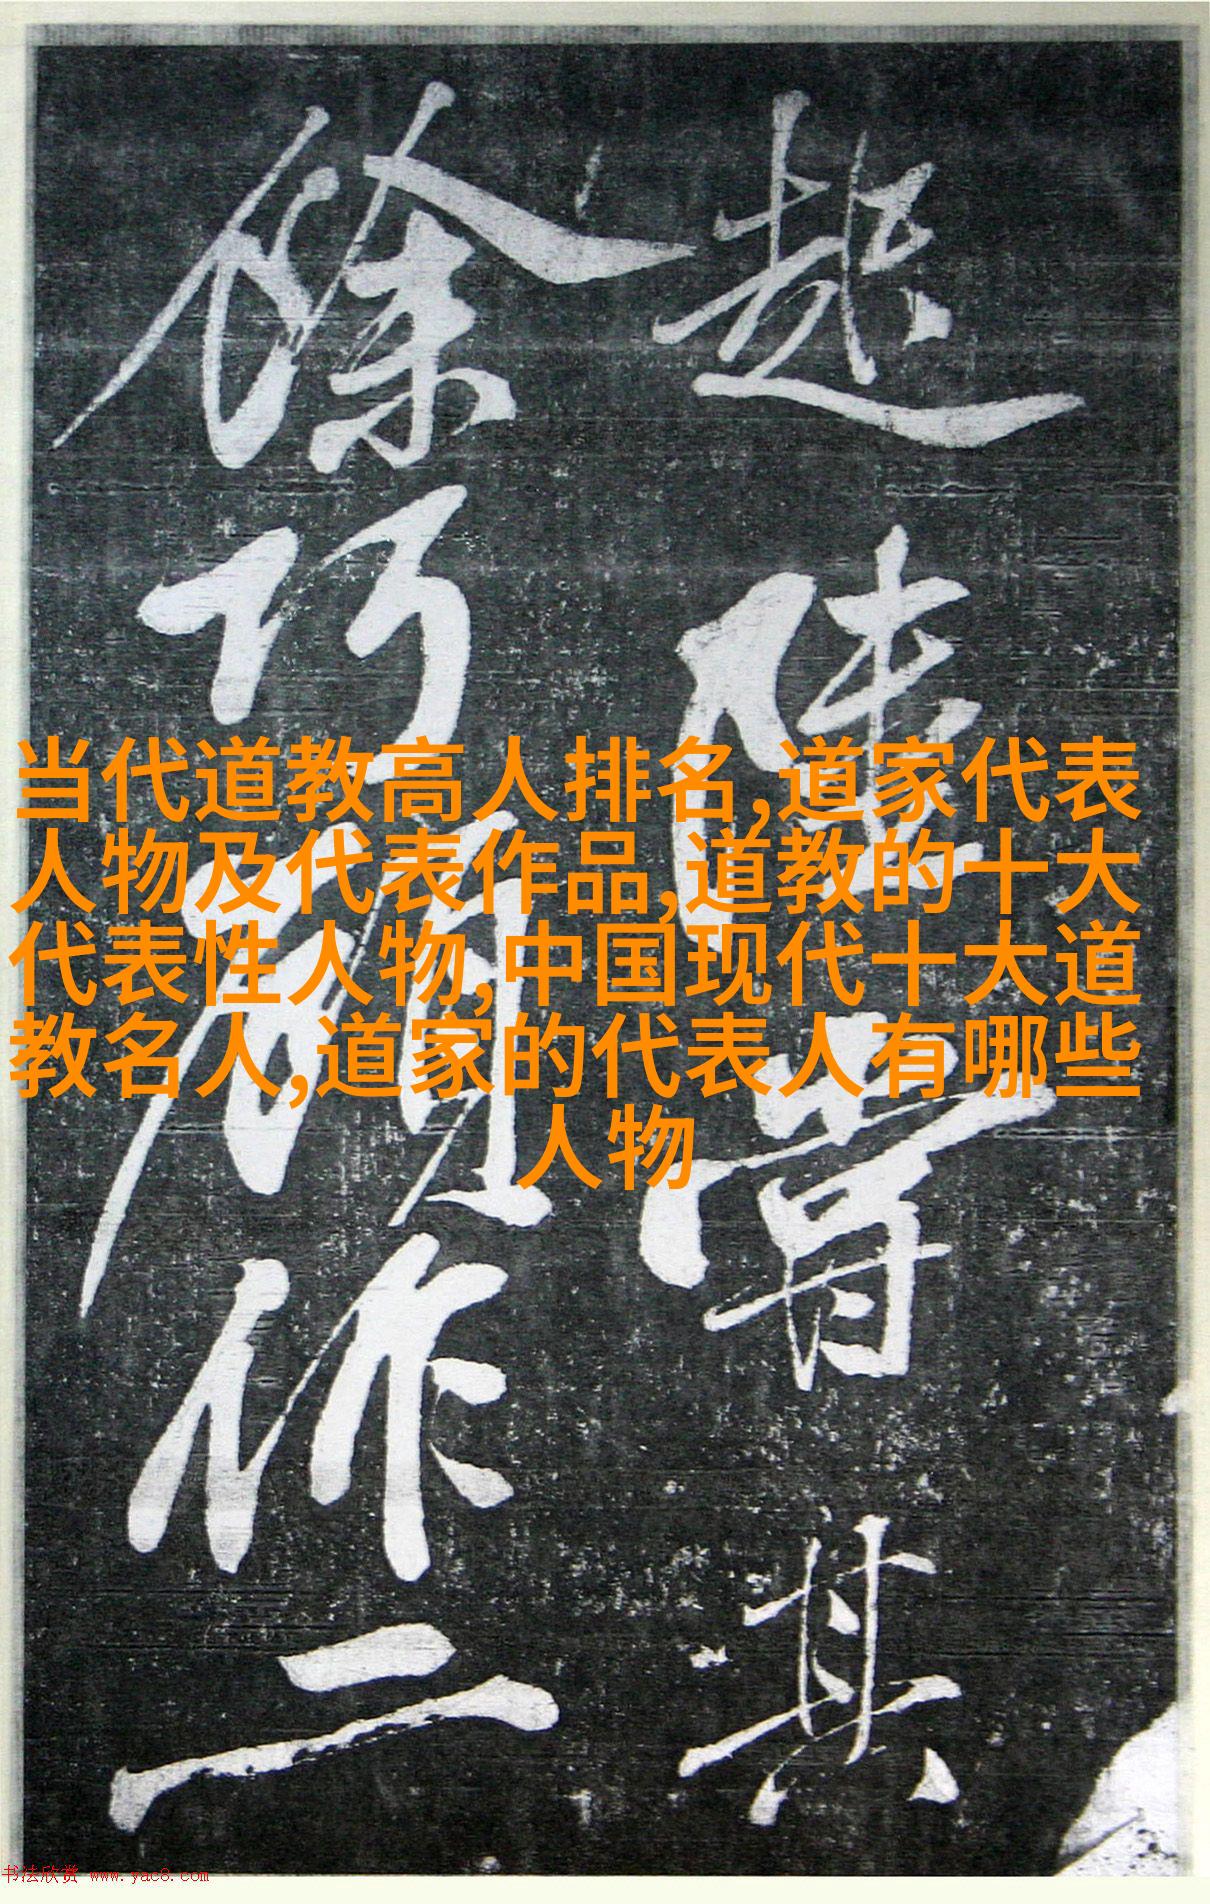 当代道教高人排名,道家代表
人物及代表作品,道教的十大
代表性人物,中国现代十大道
教名人,道家的代表人有哪些
人物
其
徐巧作二
书法欣赏 www.yac8.com